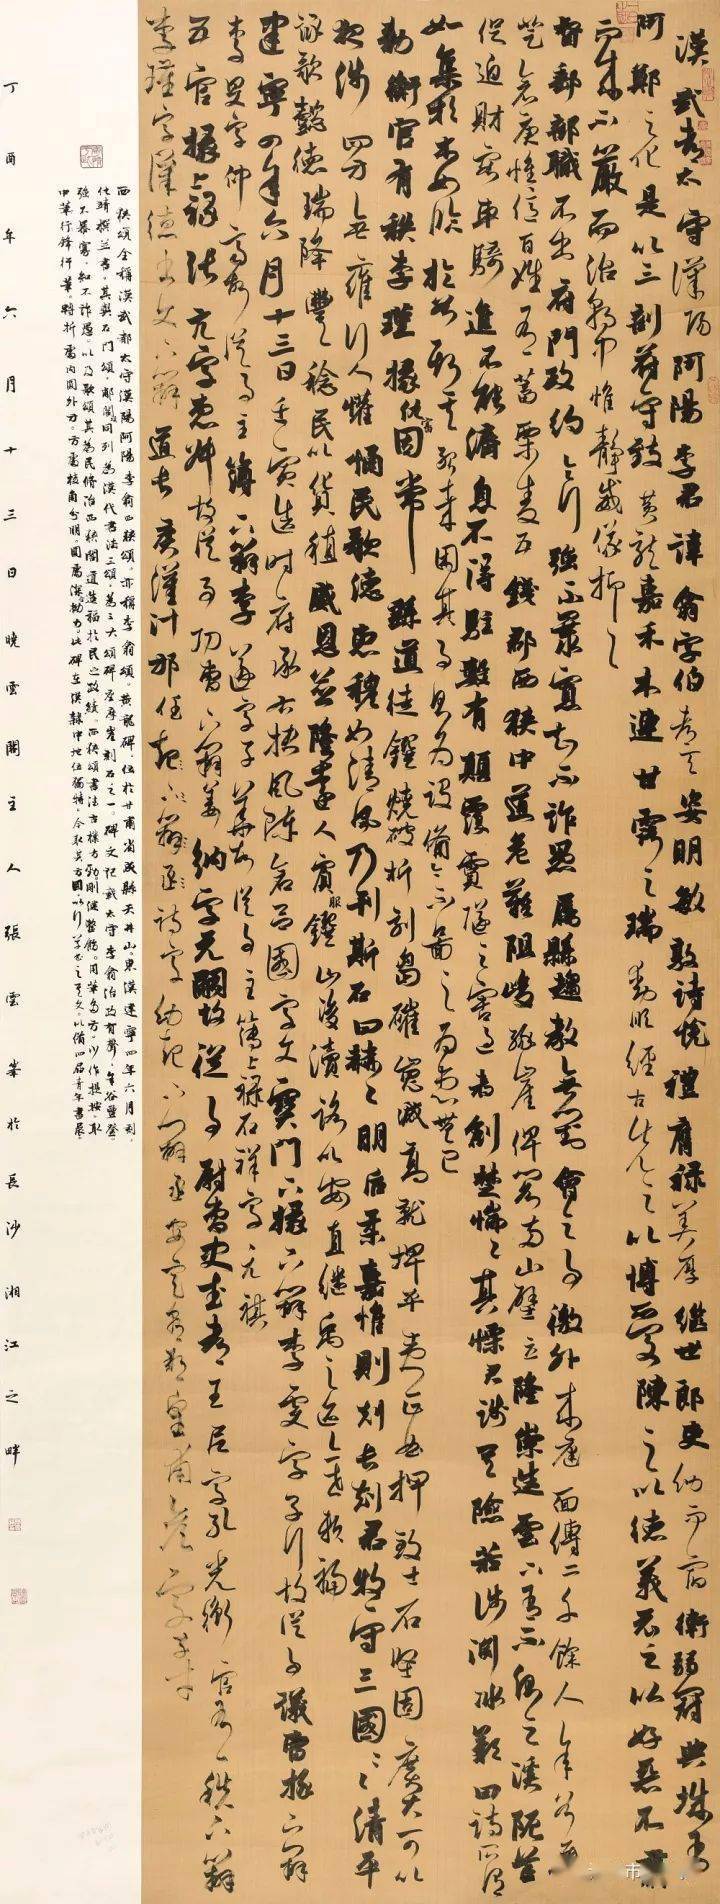 漢武都太守漢陽阿陽李君諱翕字伯都天姿明敏敦詩悅禮膺祿美厚繼世郎吏幼而宿衛弱冠典城有
阿鄭之化是以三剖符守致黃龍嘉禾木連甘露之瑞動順經古先之以博愛陳之以德義示之以好惡不肅
而成不嚴而治朝中惟靜威儀抑〻
督郵部職不出府門政約令行強不暴寡知不詐愚屬縣趨教無對會之事徼外來庭面縛二千餘人年穀屢
登倉庾惟億百姓有蓄粟麥五錢郡西狹中道危難阻峻緣崖俾閣兩山壁立隆崇造雲下有不測之溪阨笮
促迫財容車騎進不能濟息不得駐數有顛覆霣隧之害過者創楚惴〻其慄君踐其險若涉淵冰歎曰詩所謂
如集於木如臨於谷斯其殆哉困其事則為設備今不圖之為患無已
勅衡官有秩李瑾掾仇審因常繇道徒鐉燒破析刻臽確嵬減高就埤平夷正曲押致土石堅固廣大可以
夜涉四方無雍行人懽悀民歌德惠穆如清風乃刊斯石曰赫〻明后柔嘉惟則克長克君牧守三國〻清平
詠歌懿德瑞降豐稔民以貨稙威恩並隆遠人賓服鐉山浚瀆路以安直繼禹之迹亦世賴福
建寧四年六月十三日壬寅造時府丞右扶風陳倉呂國字文寶門下掾下辨李虔字子行故從事議曹掾下辨
李旻字仲齊故從事主簿下辨李遂字子華故從事主簿上祿石祥字元祺
五官掾上祿張亢字惠叔故從事功曹下辨姜納字元嗣故從事尉曹史武都王尼字孔光衡官有秩下辨
李瑾字漢德書文下辨道長廣漢汁邡任詩字幼起下辨丞安定朝那皇甫彥字子才
西狹頌全稱漢武都太守漢陽阿陽李翕西狹頌亦稱李翕頌黃龍碑位於甘肅省成縣天井山東漢建寧四年六月刻
仇靖撰並書其與石門頌郙閣同列為漢代書法三頌為三大頌碑摩崖刻石之一碑文記武都太守李翕治政有聲年谷豐登
強不暴寡知不詐愚以及歌頌其為民修治西狹閣道造福於民之政績西狹頌書法古樸方勁剛健整飭用筆為方少作提按取
中筆行鋒行筆轉折處內圓外方方處棱角分明圓處渾勁力此碑在漢隸中地位獨特今取其方圓以行草書之以備四屆青年書展
丁酉年六月十三日曉雲閣主人張雲峯於長沙湘江之畔